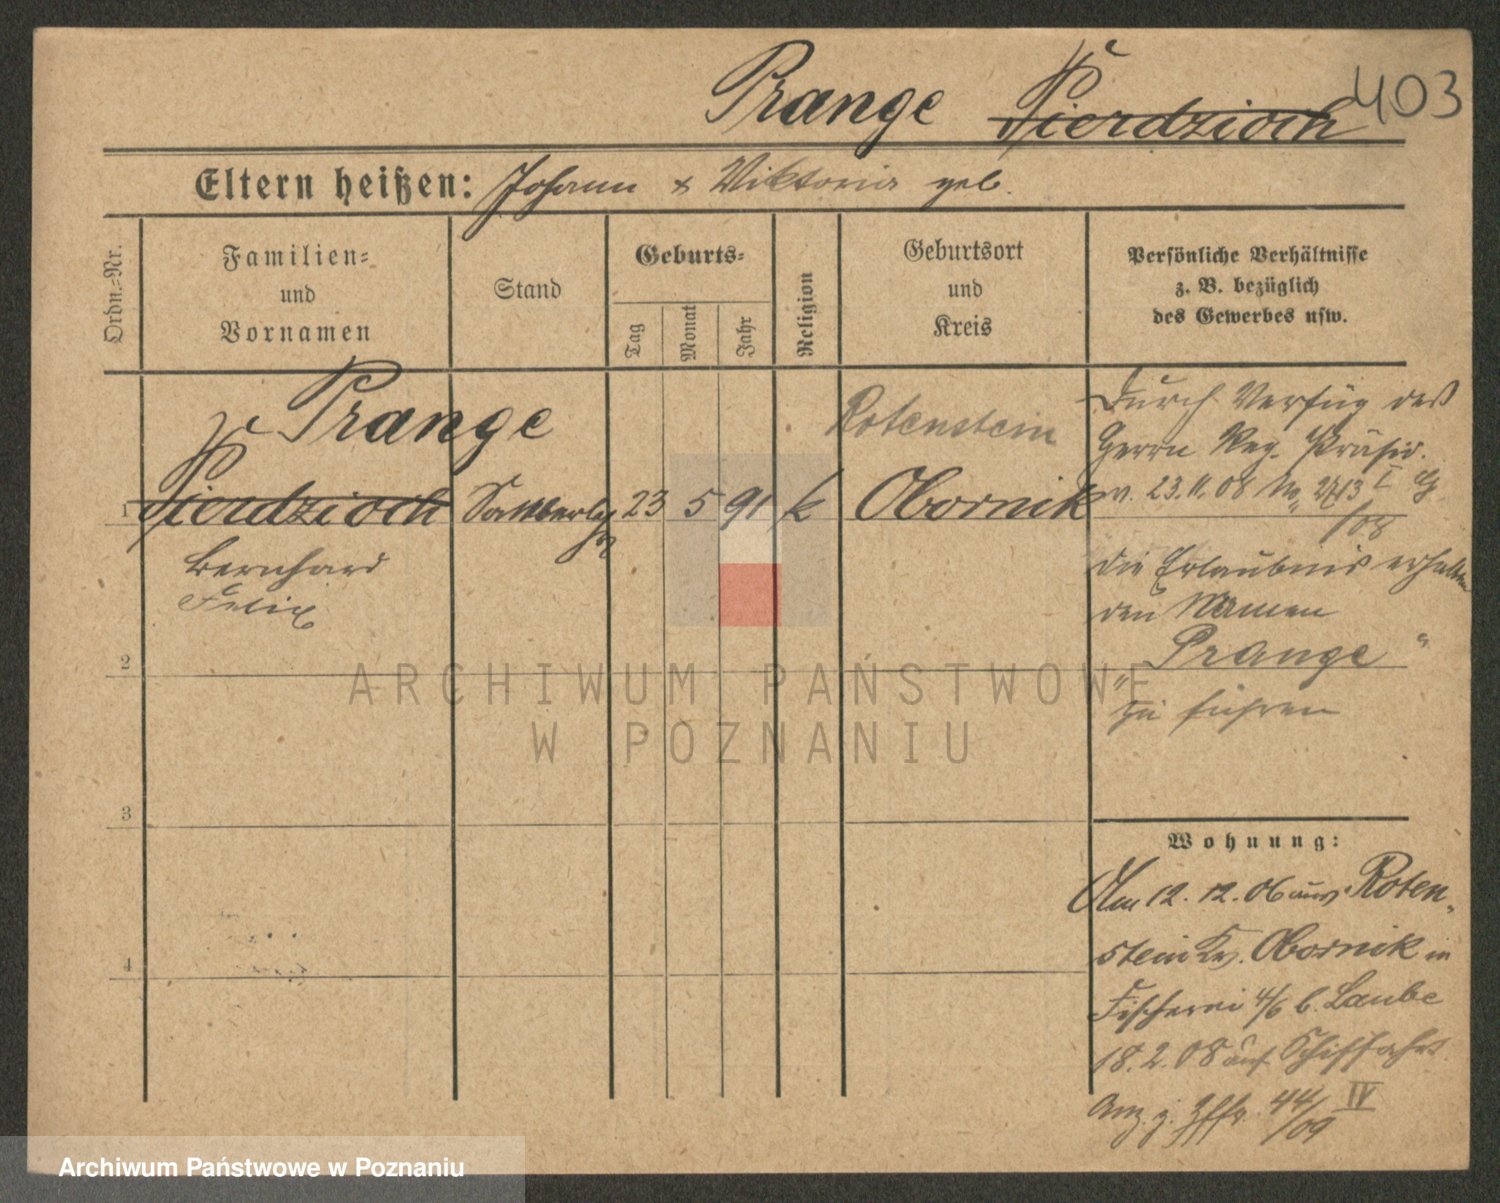 403
Prange Pierdzioch
Eltern heißen: Johann & Viktoria geb.
Ordn.-Nr.
Familien- und Vornamen
Stand
Geburts-
Tag
Monat
Jahr
Religion
Geburtsort und Kreis
Persönliche Verhältnisse
z. B. bezüglich
des Gewerbes usw.
Prange
Rotenstein
1 Pierdzioch 23 5 91 k Obornik
Bernhard
Felix
2
3
4
Durch Verfüg des
Herrn Reg. Präsid.
v. 23.11.08 No
/08
die Erlaubnis erhalten
den Namen
„Prange“
zu führen
Wohnung:
Am 12.12.06 aus Roten-
stein Kr. Obornik in
Fischerei 4/6 b. Laube
18.2.08 auf Schiffahrt
44/09 IV
ARCHIWUM PAŃSTWOWE
W POZNANIU
Archiwum Państwowe w Poznaniu